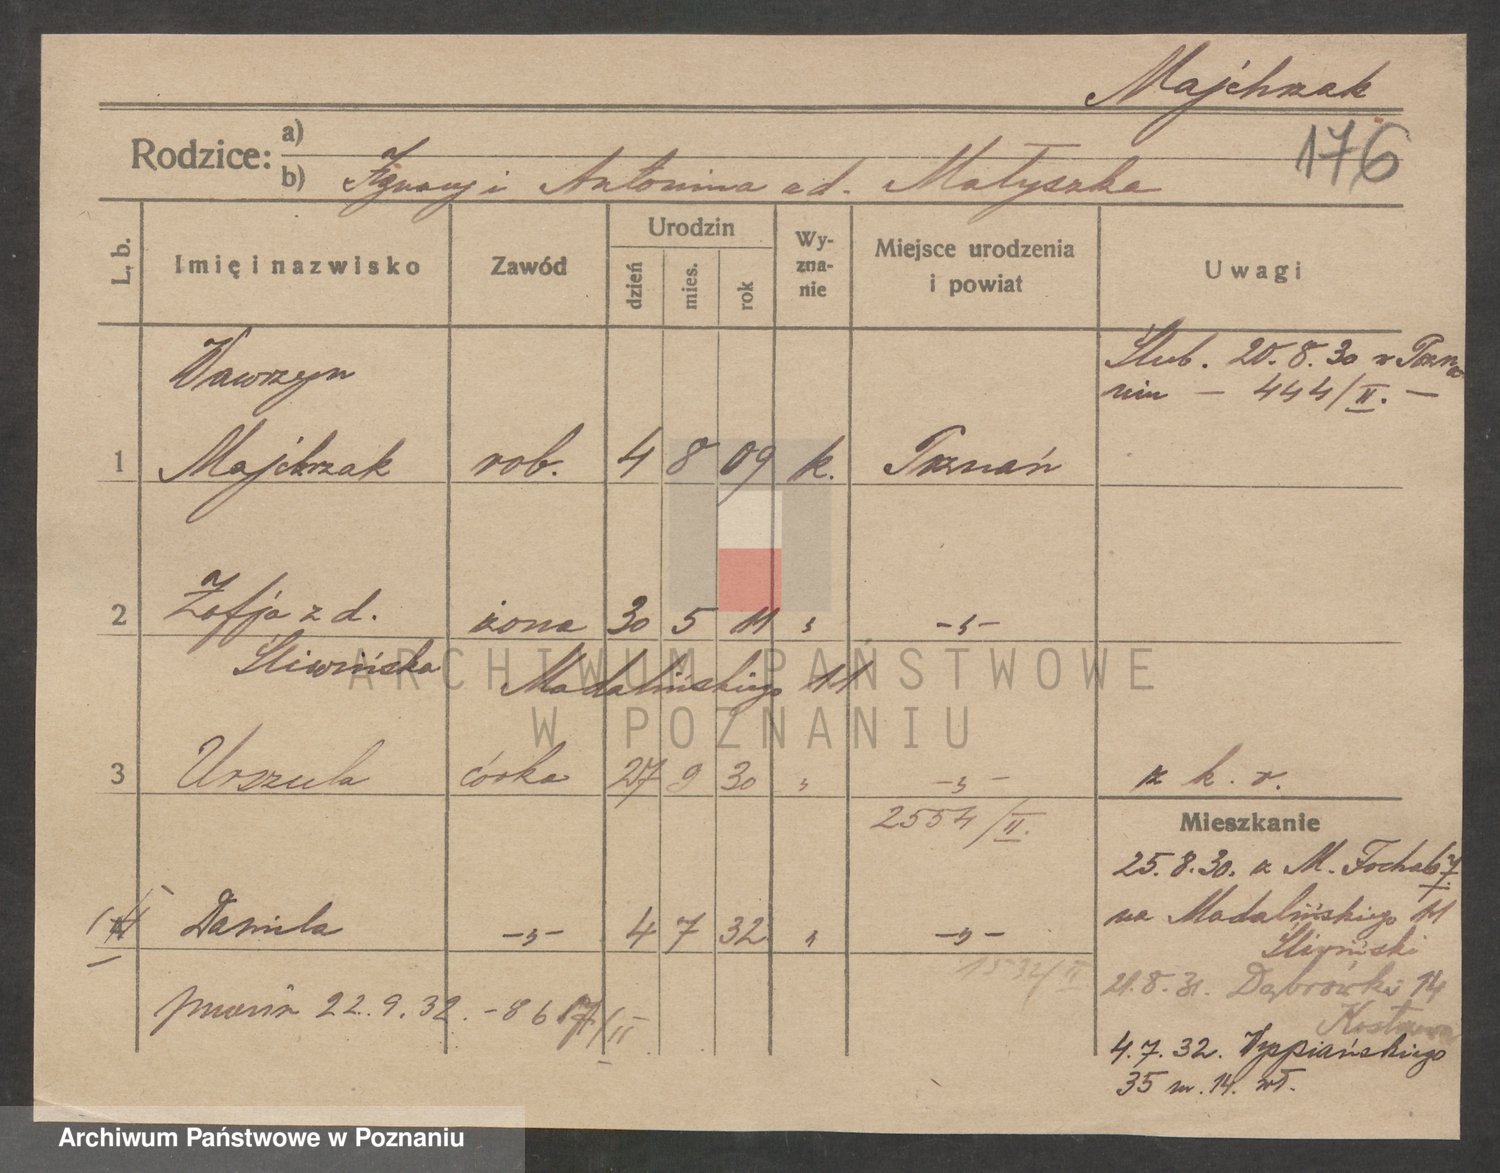 Majchrzak
176
Rodzice: a)
b) Ignacy i Antonina z d. Matyszka
L. b. Imię i nazwisko Zawód Urodzin dzień mies. rok Wyznanie Miejsce urodzenia i powiat Uwagi
Ślub. 20.8.30 w Pozna
niu — 444/II. —
Wawrzyn
1 Majchrzak rob. 4 8 09 k. Poznań
2 Zofja z d. żona 30 5 11 " -"-
Śliwińska Madalińskiego 11
3 Urszula córka 27 9 30 " -"- z k. r.
2554/II.
Mieszkanie
25.8.30. z M. Focha
na Madalińskiego 11
Śliwiński
Danuta -"- 4 7 32 " -"-
1532/II
21.8.31. Dąbrówki 14
zmarła 22.9.32. - 8617/II
4.7.32. Wyspiańskiego
35 m. 14. wł.
ARCHIWUM PAŃSTWOWE
W POZNANIU
Archiwum Państwowe w Poznaniu